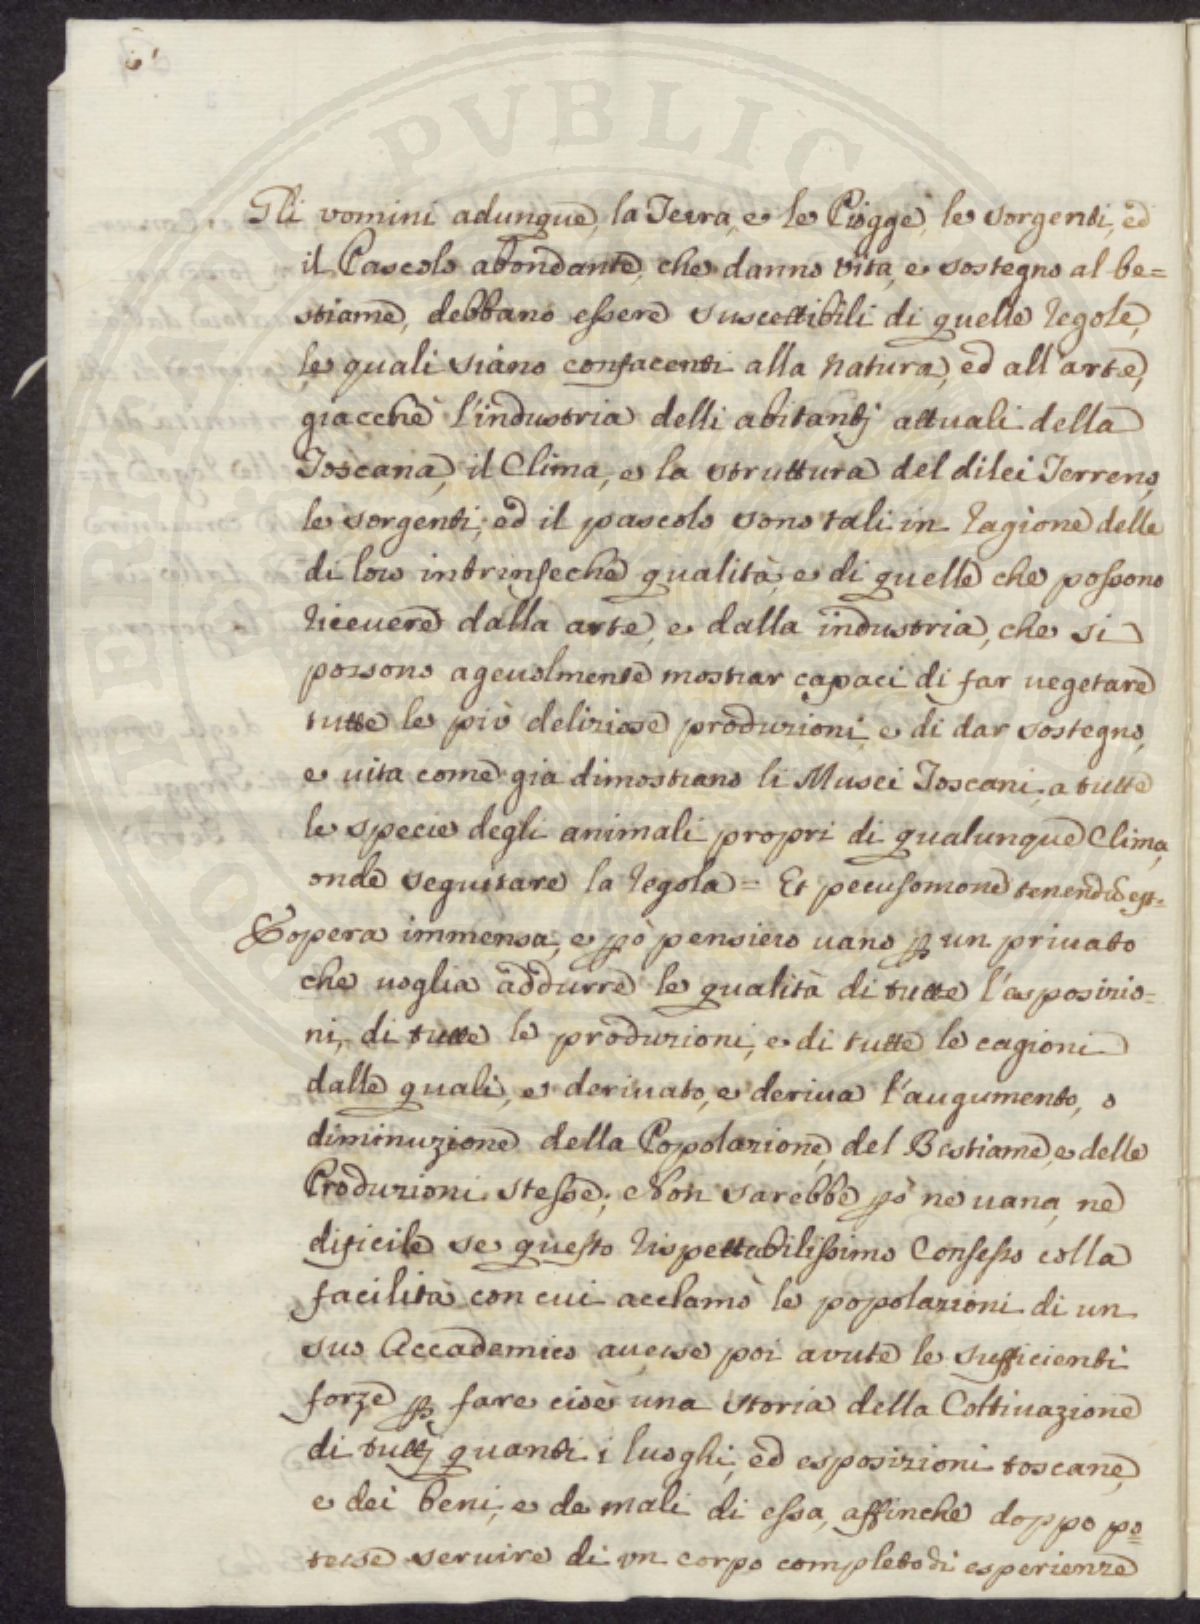 Gli vomini adunque, la Terra, e le Piogge, le sorgenti, ed
il Pascolo abondante, che danno vita, e sostegno al be=
stiame, debbano essere suscettibili di quelle regole,
le quali siano confacenti alla natura, ed all'arte,
giacchè l'industria delli abitantj attuali della
Toscana, il Clima, e la struttura del dilei Terreno,
le sorgenti, ed il pascolo sono tali in ragione delle
di loro intrinseche qualità, e di quelle che possono
riceuere dalla arte, e dalla industria, che si
possono ageuolmente mostrar capaci di far uegetare
tutte le più deliziose produzioni, e di dar sostegno,
e uita come già dimostrano li Musei Toscani, a tutte
le specie degli animali propri di qualunque Clima,
onde seguitare la regola = Et pecusomone tenendū est=
È opera immensa, e pò pensiero uano p un priuato
che uoglia addurre le qualità di tutte l'esposizio=
ni, di tutte le produzioni, e di tutte le cagioni
dalle quali, e deriuato, e deriua l'augumento, o
diminuzione della Popolazione, del Bestiame, e delle
Produzioni stesse; Non sarebbe pò ne uana, ne
dificile se questo rispettabilissimo Consesso colla
facilità con cui acclamò le popolazioni di un
suo Accademico auesse poi avute le sufficienti
forze p fare cioè una storia della Coltiuazione
di tuttj quanti i luoghi, ed esposizioni toscane,
e dei beni, e de mali di essa, affinche doppo po=
tesse seruire di vn corpo completo di esperienze
PVBLIC